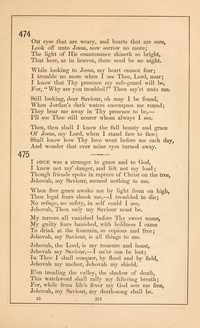 474
Our eyes that are weary, and hearts that are sore,
Look off unto Jesus, now sorrow no more;
The light of His countenance shineth so bright,
That here, as in heaven, there need be no night.
While looking to Jesus, my heart cannot fear;
I tremble no more when I see Thee, Lord, near;
I know that Thy presence my safe-guard will be,
For, "Why are you troubled?" Thou say'st unto me.
Still looking, dear Saviour, oh may I be found,
When Jordan's dark waters encompass me round;
They bear me away in Thy presence to be:
I'll see Thee still nearer whom always I see.
Then, then shall I know the full beauty and grace
Of Jesus, my Lord, when I stand face to face;
Shall know how Thy love went before me each day,
And wonder that ever mine eyes turned away.
475
I ONCE was a stranger to grace and to God,
I knew not my danger, and felt not my load;
Though friends spoke in rapture of Christ on the tree,
Jehovah, my Saviour, seemed nothing to me.
When free grace awoke me by light from on high,
Then legal fears shook me,—I trembled to die;
No refuge, no safety, in self could I see,
Jehovah, Thou only my Saviour must be.
My terrors all vanished before Thy sweet name,
My guilty fears banished, with boldness I came
To drink at the fountain, so copious and free;
Jehovah, my Saviour, is all things to me.
Jehovah, the Lord, is my treasure and boast,
Jehovah, my Saviour,—I ne'er can be lost;
In Thee I shall conquer, by flood and by field,
Jehovah my anchor, Jehovah my shield.
E'en treading the valley, the shadow of death,
This watchword shall rally my faltering breath;
For, while from life's fever my God sets me free,
Jehovah, my Saviour, my death-song shall be.